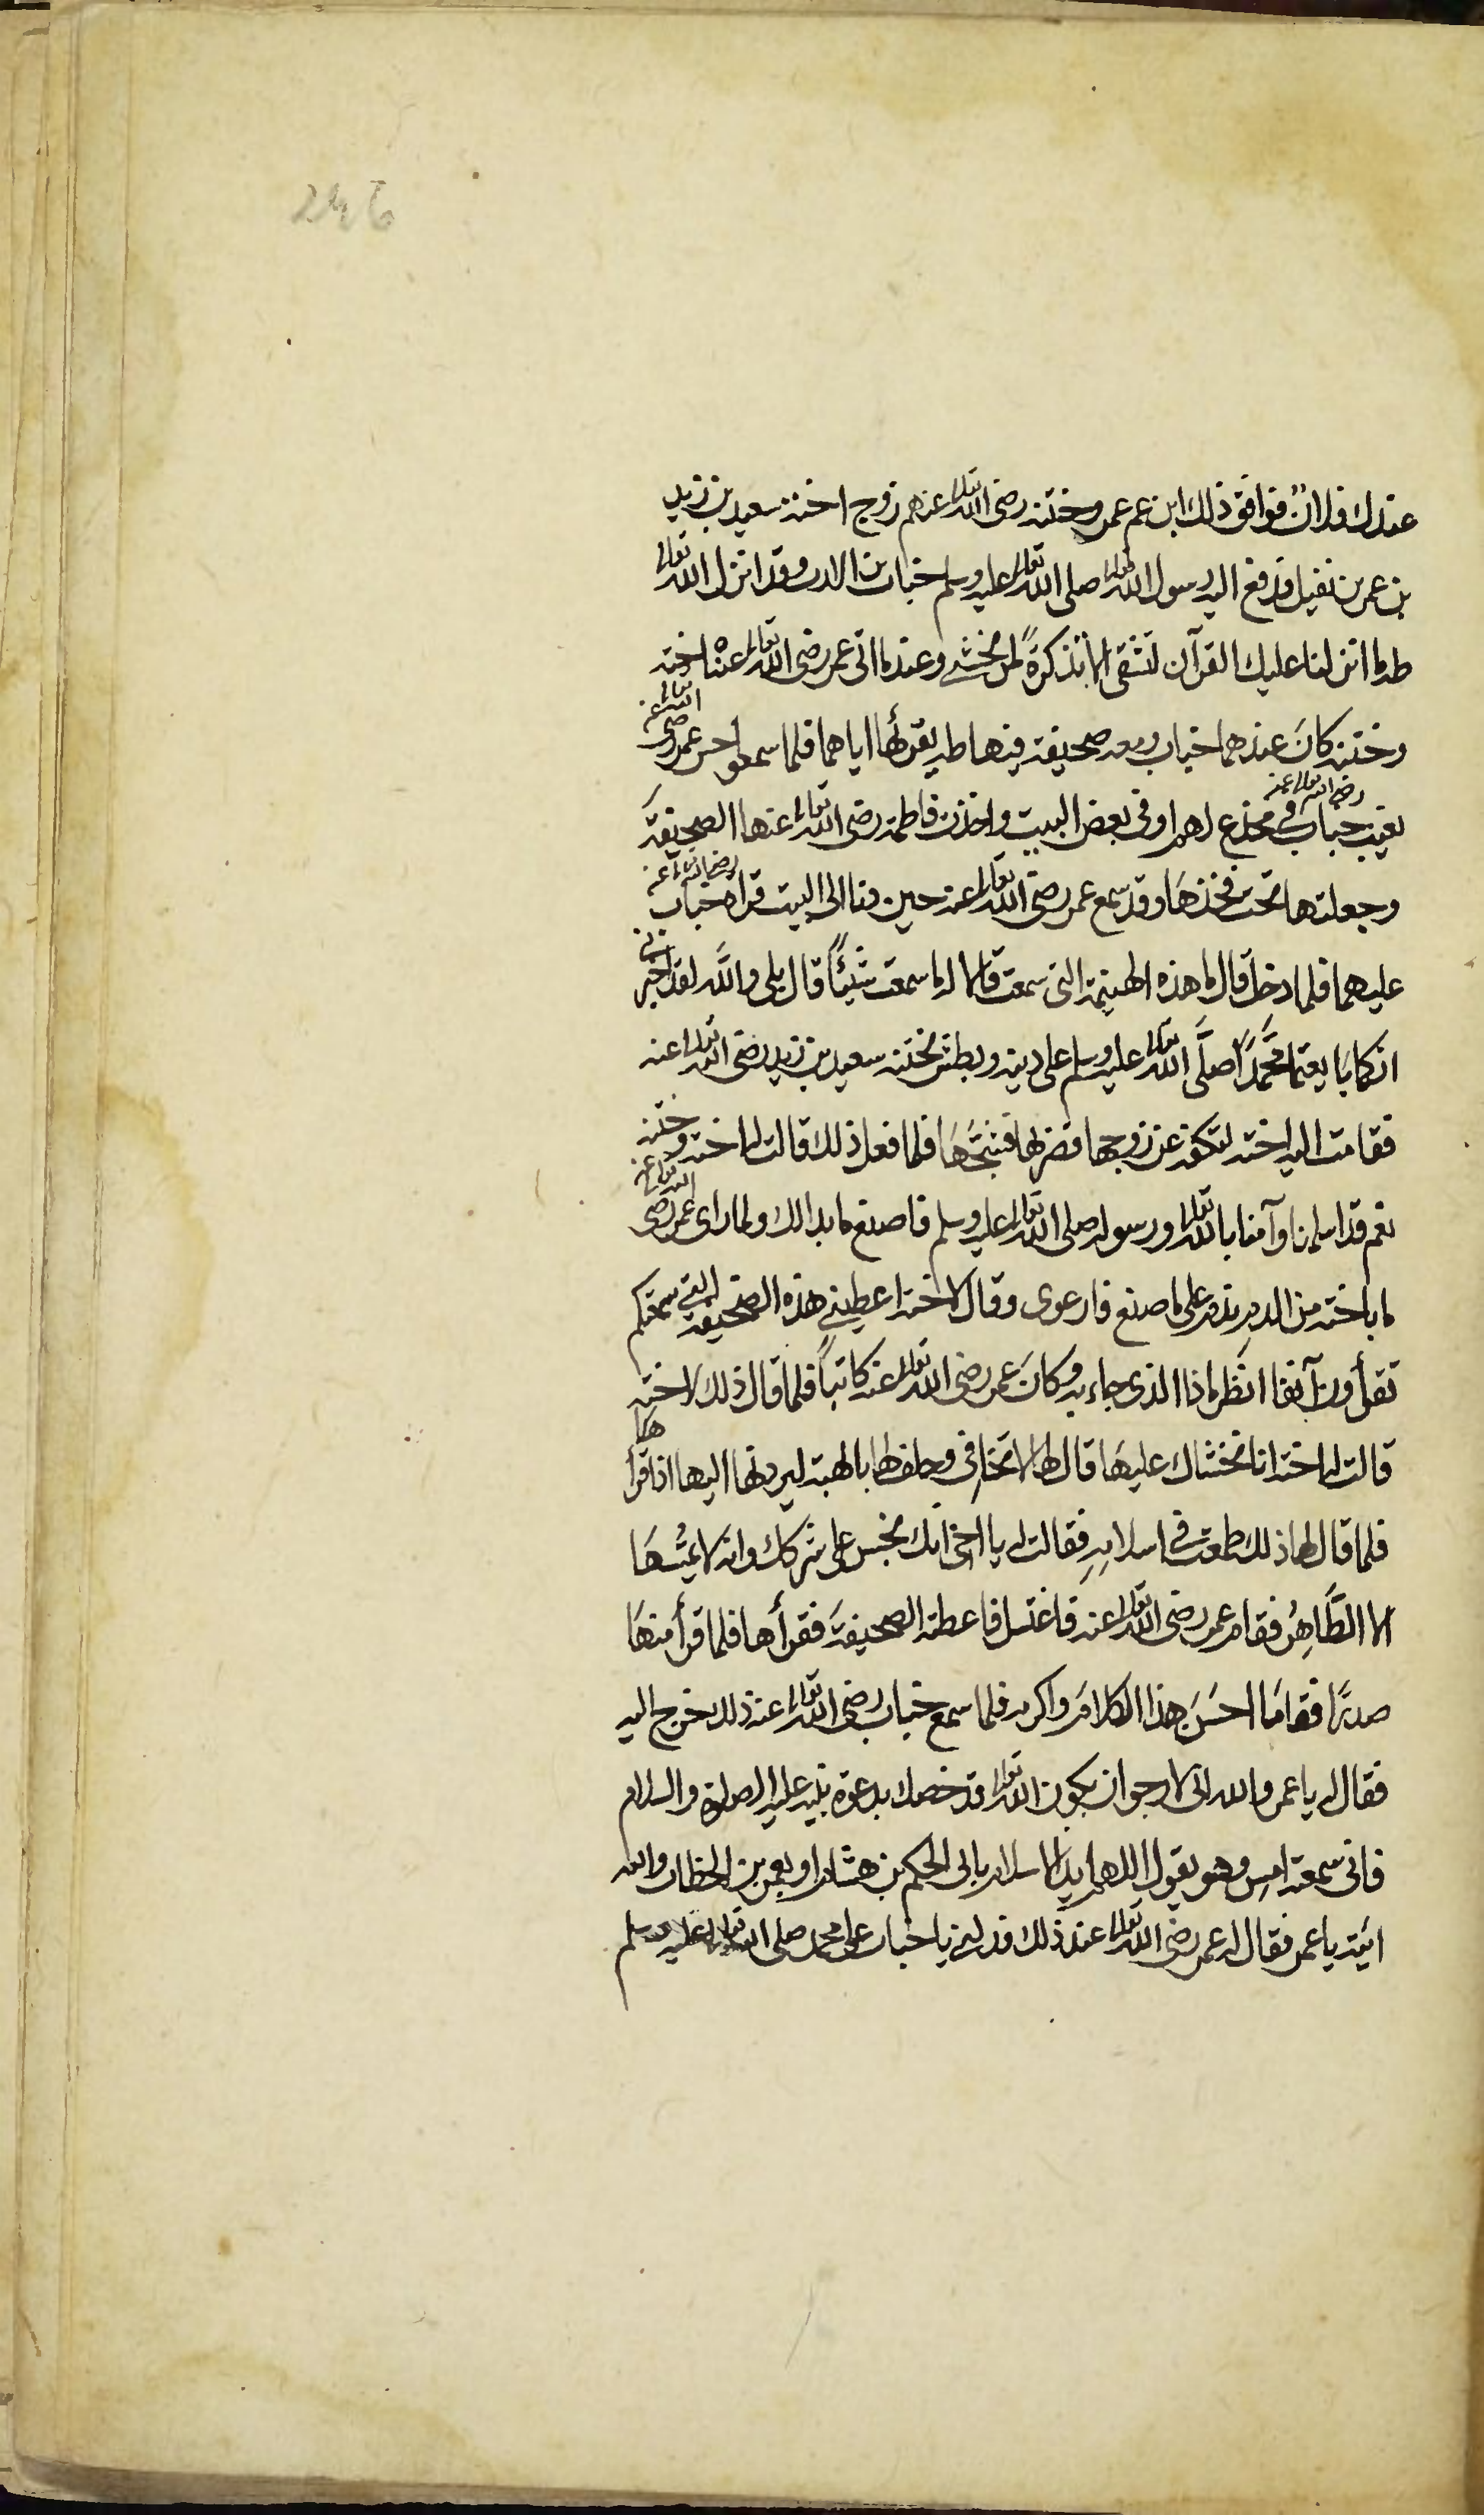 عندك فلان فوافق ذلك ابن عم عمر وختنه رضى الله تعالى عنهم زوج اخته سعيد بن زيد
بن عمر بن نفيل قد دفع اليه رسول الله تعالى صلى الله تعالى عليه وسلم خباب بن الارت وقد انزل الله تعالى
طه ما انزلنا عليك القرآن لتشقى الا تذكرةً لمن يخشى وعندما اتى عمر رضى الله تعالى عنه اخته
وختنه كانَ عندهما خباب ومعه صحيفة فيها طه يقرئها اياهما فلما سمعوا حس عمر رضى الله تعالى عنه
تغيب خباب رضى الله تعالى عنه فى مخدع لهم او فى بعض البيت واخذت فاطمة رضى الله تعالى عنها الصحيفةَ
وجعلتها تحت فخذهَا وقد سمع عمر رضى الله تعالى عنه حين دنا الى البيت قراءة خباب رضى الله تعالى عنه
عليهما فلما دخل قال ما هذه الهينمة التى سمعت قالا له ما سمعت شيئاً قال بلى واللّه لقد اخبرت
انكما بايعتما محمَّداً صلَّى اللّه تعالى عليه وسلم على دينه وبطش بختنه سعيد بن زيد رضى الله تعالى عنه
فقامت اليه اخته لتكفه عن زوجها فضربها فشجَّهَا فلما فعل ذلك قالت له اخته وختنه
نعم قد اسلمنا وآمنا بالله تعالى ورسوله صلى الله تعالى عليه وسلم فاصنع ما بدا لك ولما راى عمر رضى الله تعالى عنه
ما باخته من الدم ندم على ما صنع فارعوى وقال لاخته اعطينى هذه الصحيفة التى سمعتكم
تقرأون آنفا انظر ماذا الذى جاء به وكانَ عمر رضى الله تعالى عنه كاتباً فلما قال ذلك لاخته
قالت له اخته انا نخشاك عليهَا قال لها لا تخافى وحلف لها بالهته ليردنها اليها اذا قرأها
فلما قال لها ذلك طمعت فى اسلامِهِ فقالت له يا اخى انك نجس على شركك وانه لا يمسُّهَا
الا الطَّاهِرُ فقام عمر رضى الله تعالى عنه فاغتسل فاعطته الصحيفةَ فقرأها فلما قرأ منهَا
صدرًا فقَالَ مَا احسَنَ هذا الكلامَ واكرمه فلما سمع خباب رضى الله تعالى عنه ذلك خرج اليه
فقال له يا عمر والله انى لارجو ان يكون الله تعالى قد خصك بدعوة نبيه عليه الصلوة والسلام
فانى سمعته امس وهو يقول اللهم ايد الاسلام بابى الحكم بن هشام او بعمر بن الخطاب والله
ائته يا عمر فقال له عمر رضى الله تعالى عند ذلك فدلنى يا خباب على محمد صلى الله تعالى عليه وسلم